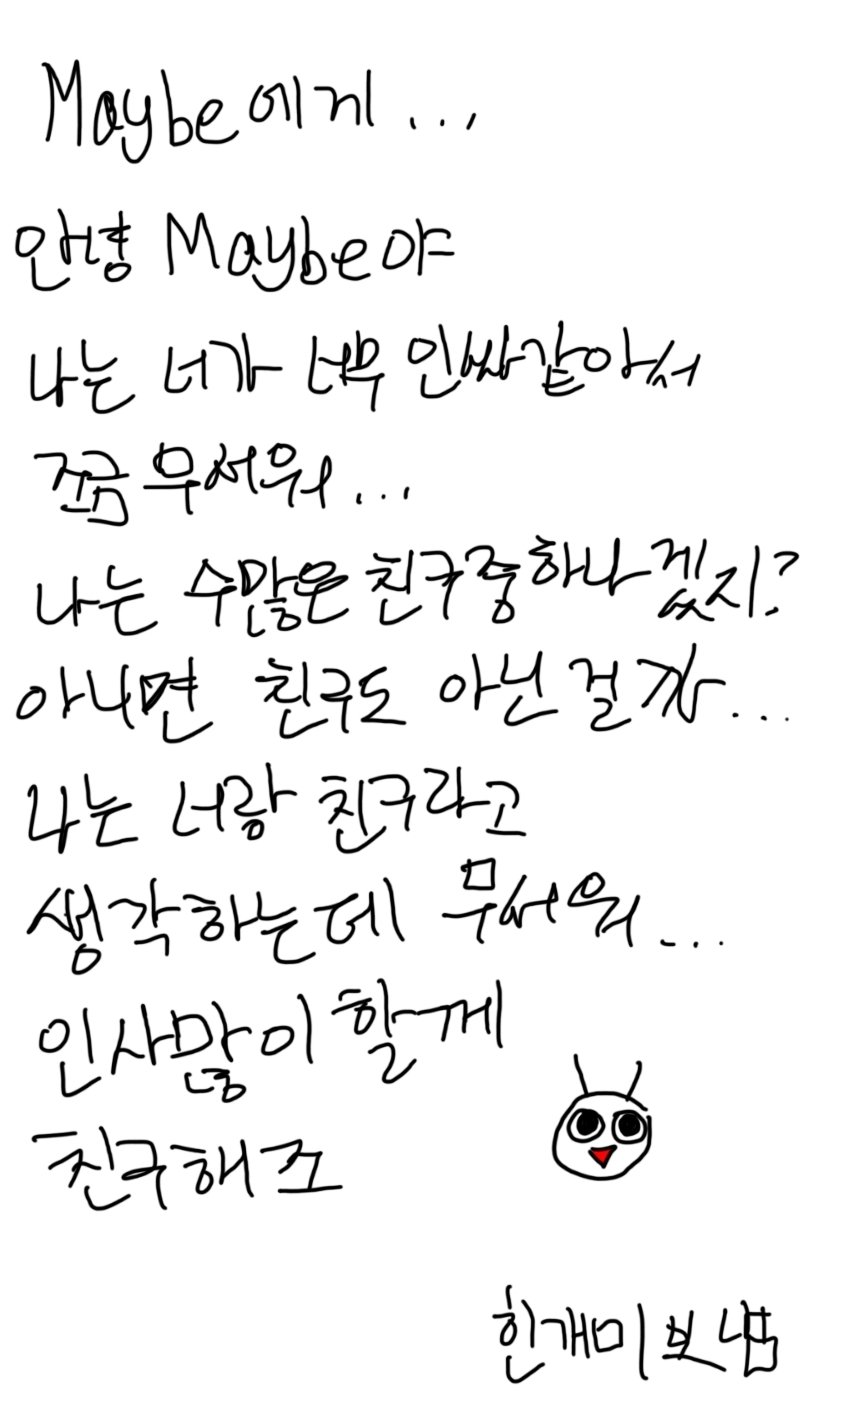 Maybe에게...
안녕 Maybe야
나는 너가 너무 인싸같아서
쪼금 무서워...
나는 수많은 친구중하나겠지?
아니면 친구도 아닌걸까...
나는 너랑 친구라고
생각하는데 무서워...
인사많이할게
친구해조
한개미보냄